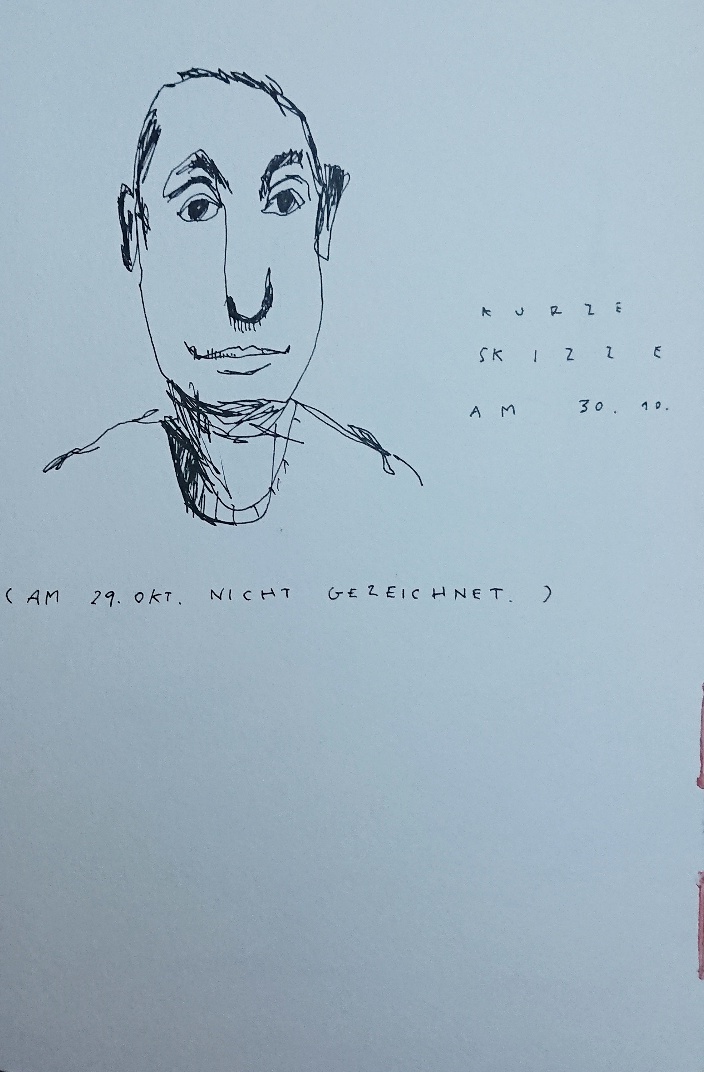 KURZE
SKIZZE
AM 30. 10.
(AM 29. OKT. NICHT GEZEICHNET.)